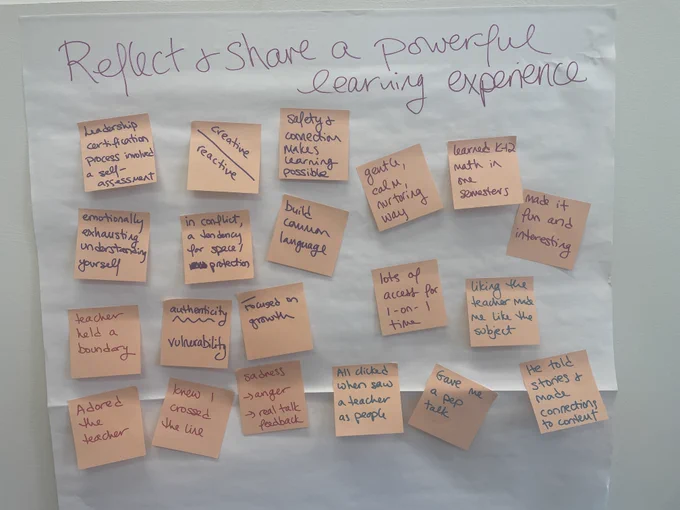 Reflect & share a powerful
learning experience
Leadership
certification
process involved
a self-
assessment
creative
reactive
safety &
connection
makes
learning
possible
gentle,
calm,
nurturing
way
learned K-12
math in
one
semesters
made it
fun and
interesting
emotionally
exhausting
understanding
yourself
in conflict,
a tendency
for space/
protection
build
common
language
lots of
access for
1-on-1
time
liking the
teacher made
me like the
subject
teacher
held a
boundary
authenticity
vulnerability
Focused on
growth
Adored
the
teacher
knew I
crossed
the line
sadness
→ anger
→ real talk
feedback
All clicked
when saw
a teacher
as people
Gave me
a pep
talk
He told
stories &
made
connections
to content